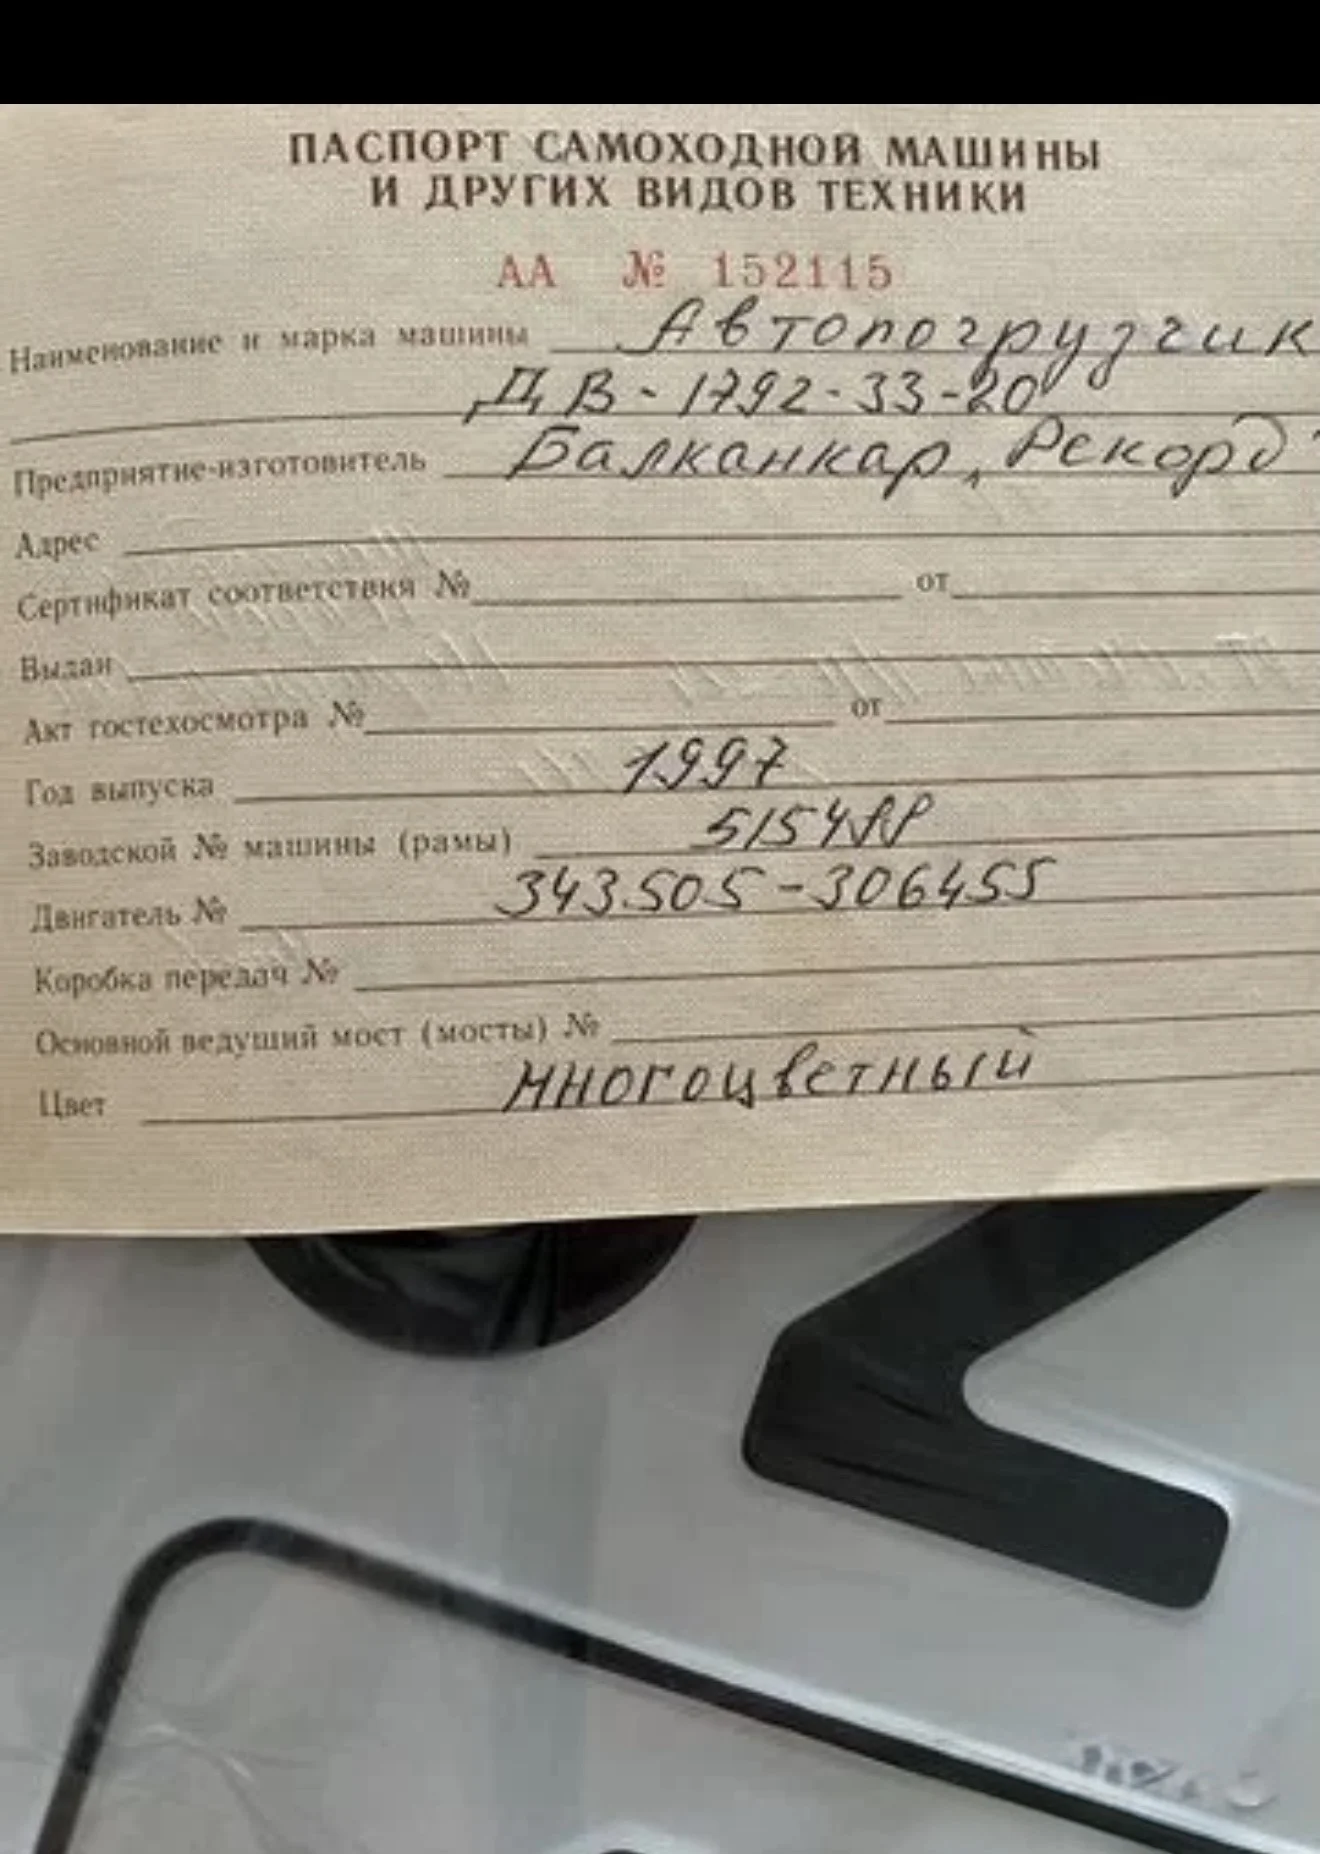 ПАСПОРТ САМОХОДНОЙ МАШИНЫ
И ДРУГИХ ВИДОВ ТЕХНИКИ
АА № 152115
Наименование и марка машины Автопогрузчик
ДВ-1792-33-20
Предприятие-изготовитель Балканкар „Рекорд"
Адрес
Сертификат соответствия № от
Выдан
Акт гостехосмотра № от
Год выпуска 1997
Заводской № машины (рамы)
Двигатель № 343.505-306455
Коробка передач №
Основной ведущий мост (мосты) №
Цвет многоцветный